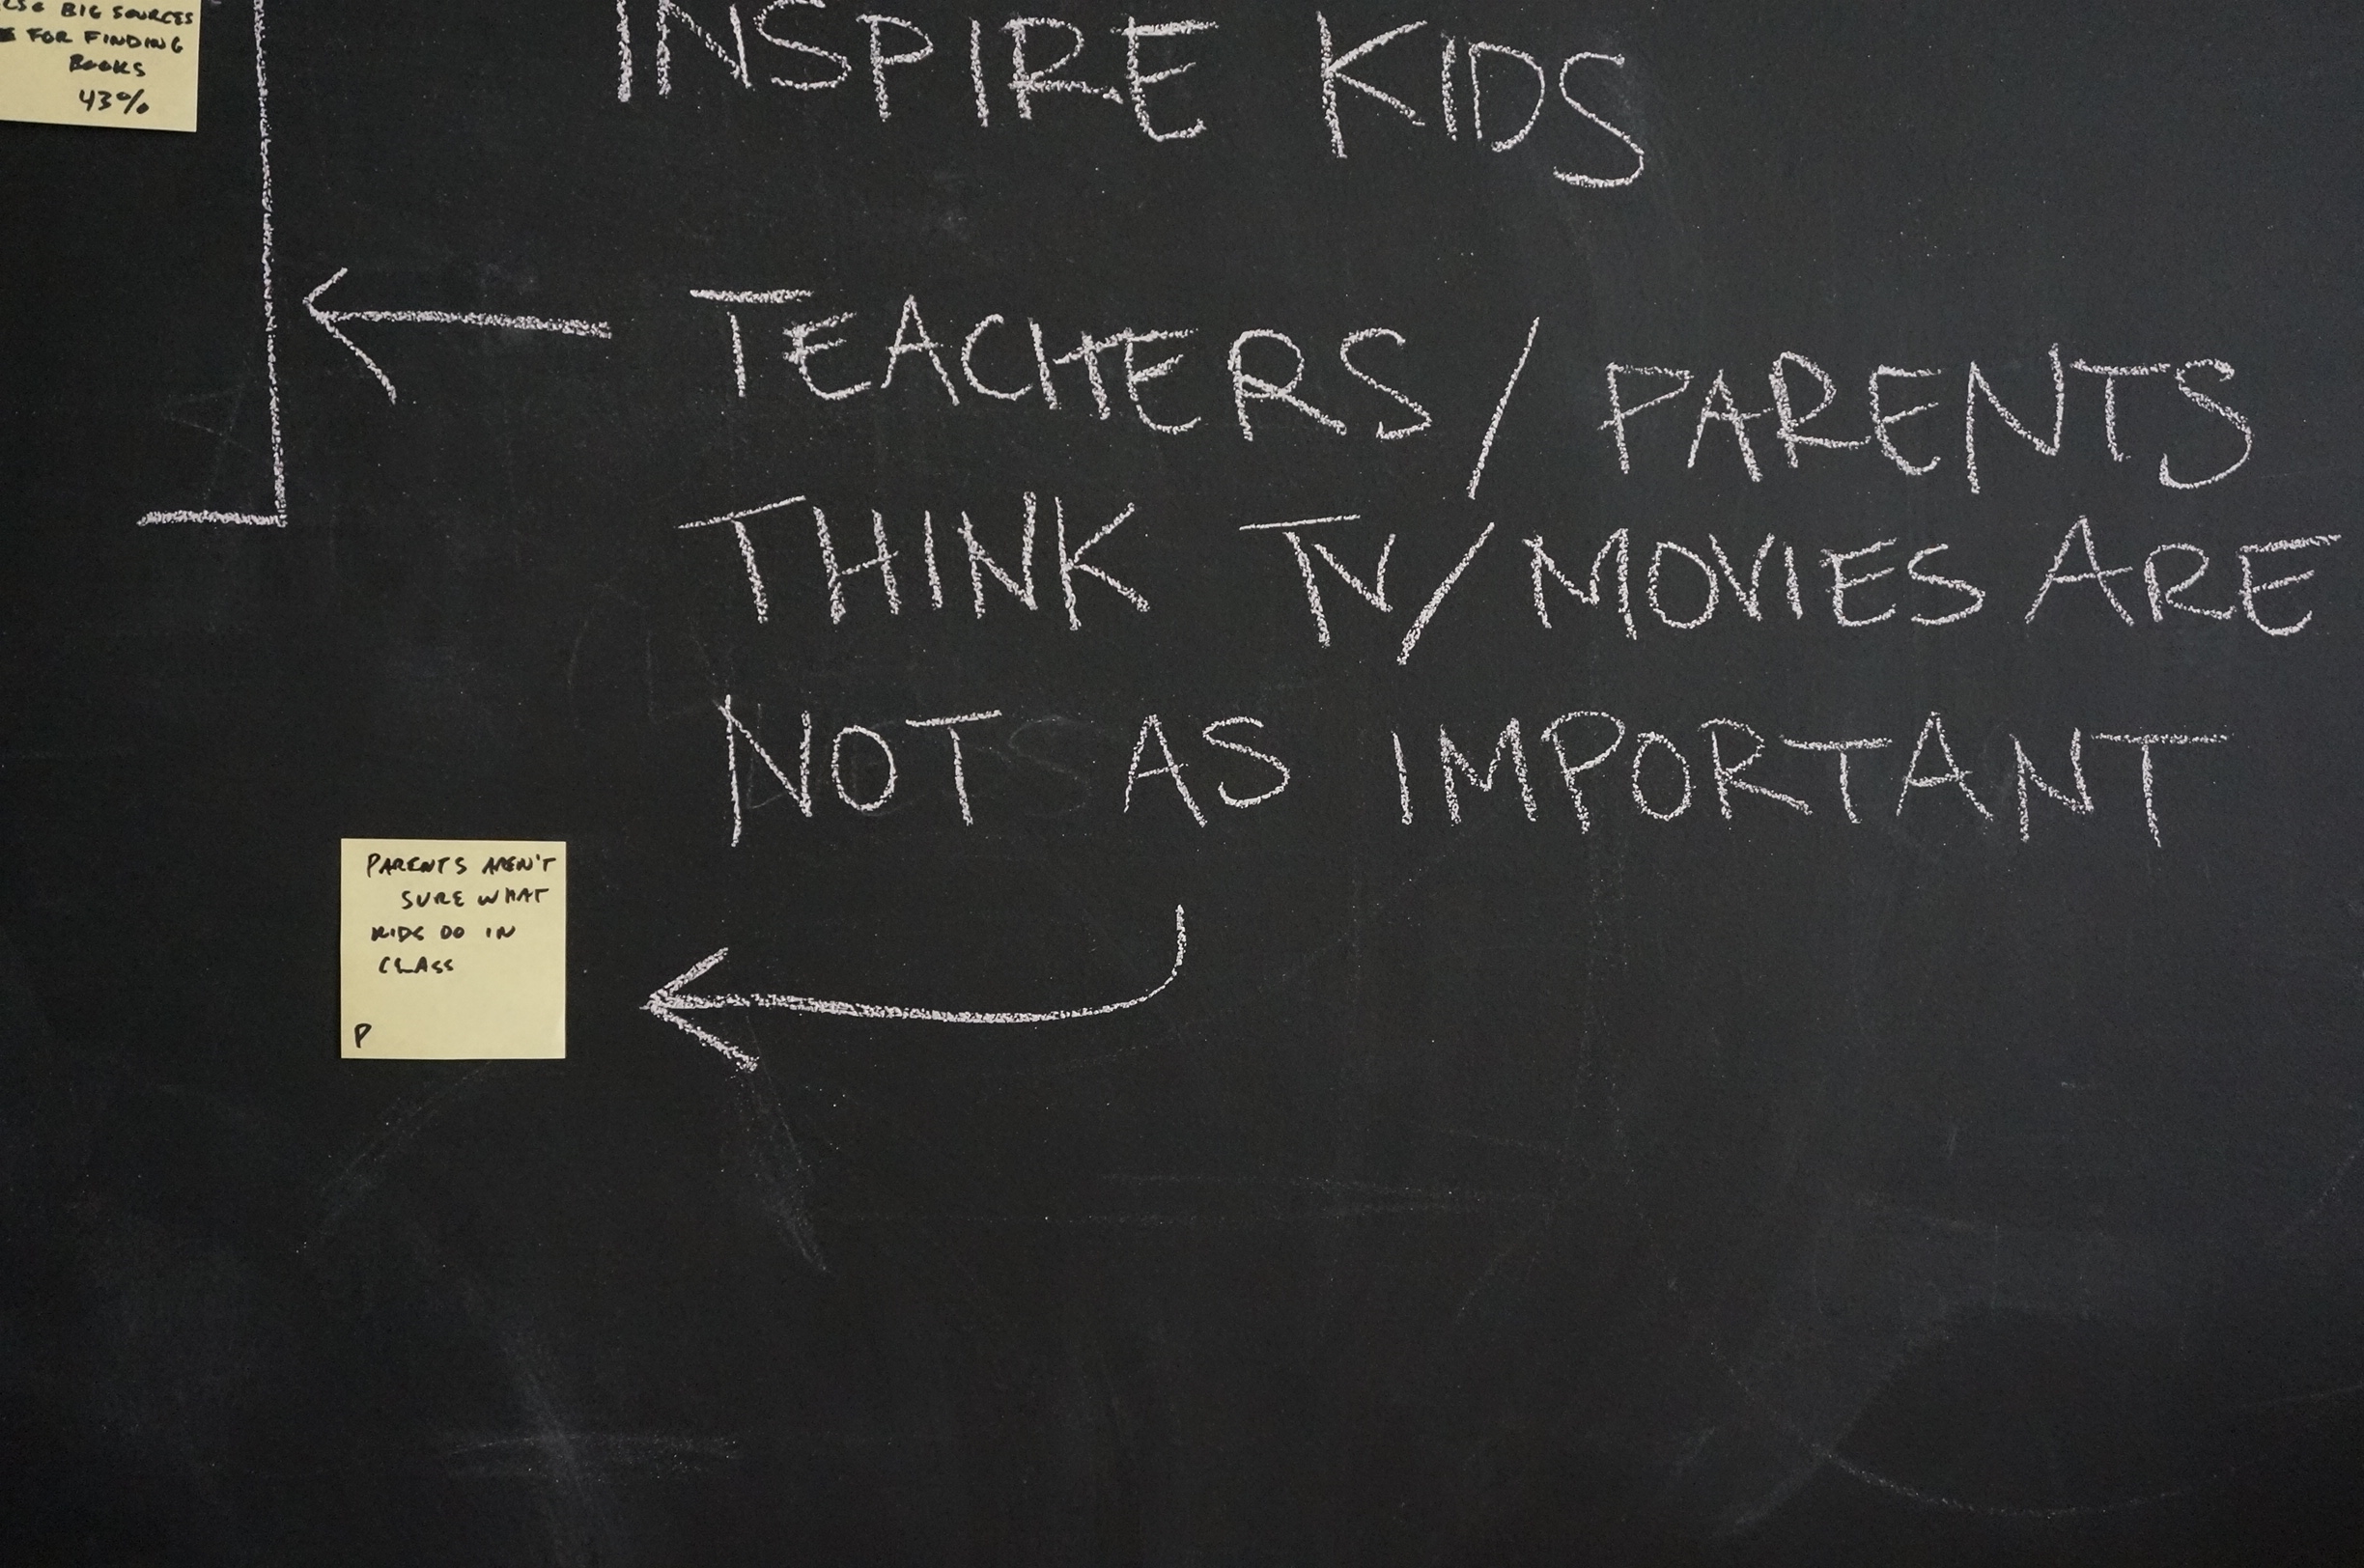 BIG SOURCES
FOR FINDING
BOOKS
43%
INSPIRE KIDS
TEACHERS / PARENTS
THINK TV/MOVIES ARE
NOT AS IMPORTANT
PARENTS AREN'T
SURE WHAT
KIDS DO IN
CLASS
P